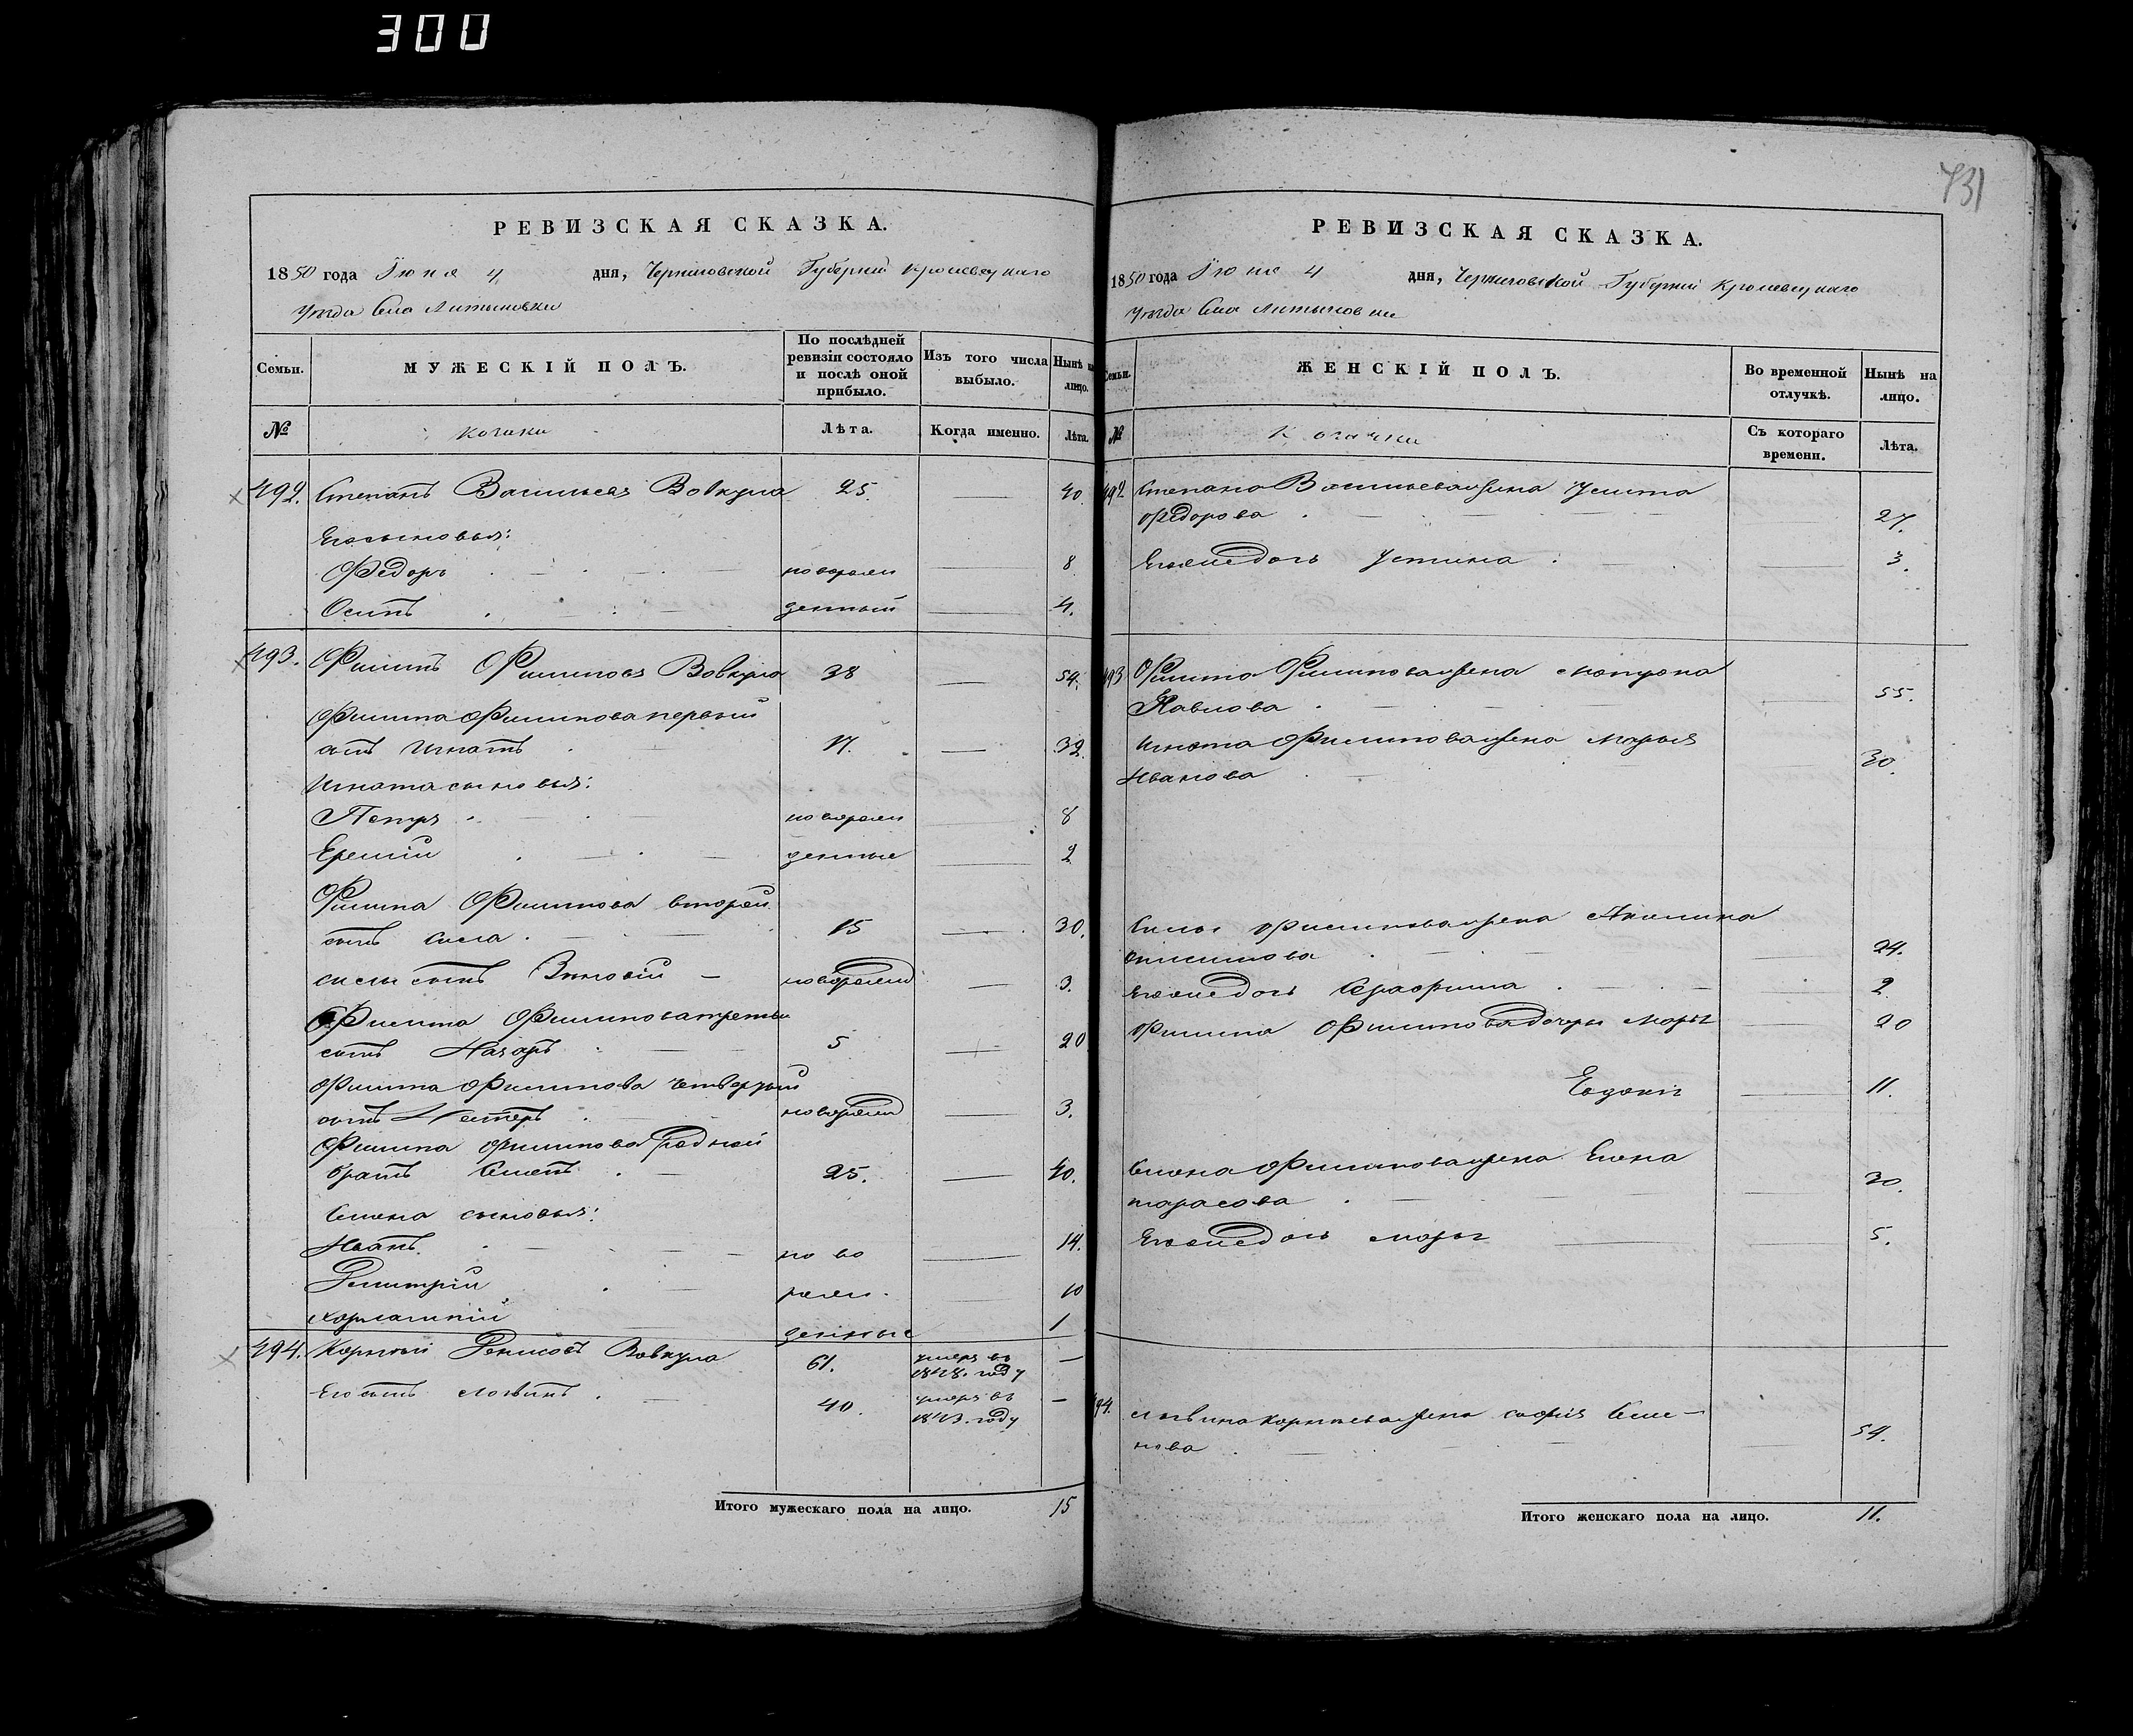 300
731
РЕВИЗСКАЯ СКАЗКА.
1850 года Iюня 4 дня, Черниговской Губернiи Кролевецкаго
Уѣзда Села Литвиновки
Семьи. МУЖЕСКIЙ ПОЛЪ. По послѣдней ревизiи состояло и послѣ оной прибыло. Изъ того числа выбыло. Нынѣ на лицо.
№ Козаки Лѣта. Когда именно. Лѣта.
492. Степанъ Васильевъ Вовкула 25. 40
Его сыновья:
Федоръ новорож 8
Осипъ денный 4.
493. Филипъ Филиповъ Вовкула 38 54.
Филипа Филипова первый
сынъ Игнатъ 17. 32.
Игната сыновья:
Петръ новорож 8
Еремiй денные 2
Филипа Филипова второй
сынъ Сила 15 30.
Силы сынъ Зиновiй новорожд 3.
Филипа Филипова третiй
сынъ Назаръ 5 20
Филипа Филипова четвертый
сынъ Нестеръ новорожд 3.
Филипа Филипова родной
братъ Семенъ 25. 40.
Семена сыновья:
Иванъ ново 14.
Димитрiй рож 10
Харлампiй денные 1
494. Корнiй Денисовъ Вовкула 61. умеръ въ —
1848. году
Его сынъ Логвинъ 40. умеръ въ —
1843. году
Итого мужескаго пола на лицо. 15
РЕВИЗСКАЯ СКАЗКА.
1850 года Iюня 4 дня, Черниговской Губернiи Кролевецкаго
Уѣзда Села Литвиновки
Семьи. ЖЕНСКIЙ ПОЛЪ. Во временной отлучкѣ. Нынѣ на лицо.
№ Козачки Съ котораго времени. Лѣта.
492 Степана Васильева жена Улита
Федорова 27.
Его же дочь Устина 3.
493 Филипа Филипова жена Матрона
Павлова 55.
Игната Филипова жена Марья
Иванова 30.
Силы Филипова жена Акилина
Онисимова 24.
Его же дочь Серафима 2
Филипа Филипова дочери Марья 20
Евдокiя 11.
Семена Филипова жена Елена
Тарасова 30.
Его же дочь Марья 5.
494. Логвина Корнiева жена Софiя Семе-
нова 54.
Итого женскаго пола на лицо. 11.